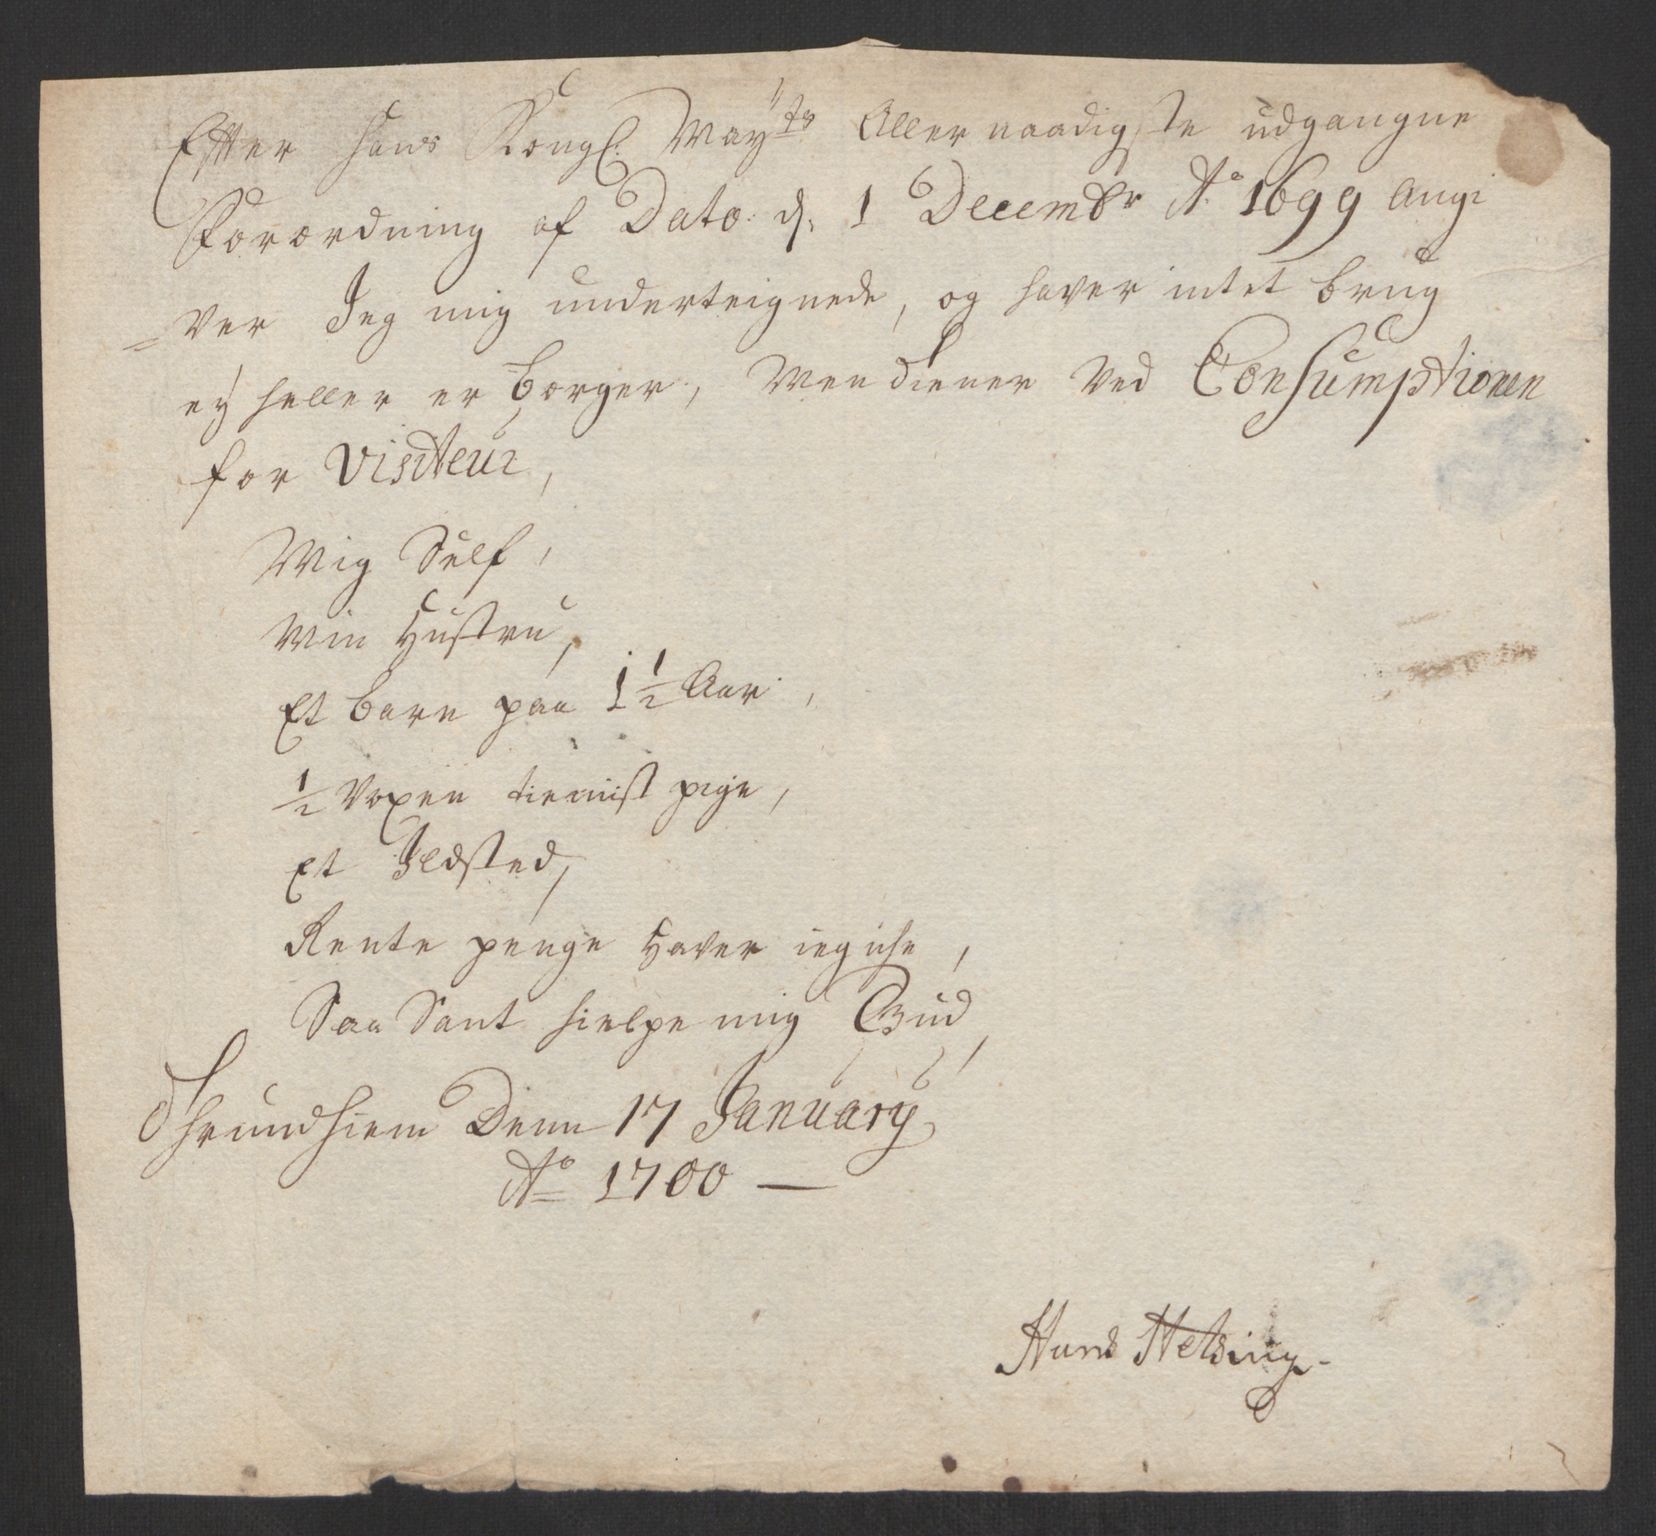 Efter Hans Kongl: Mayts Allernaadigste udgangne
Forordning af Dato d: 1 Decembr Ao 1699 Angi
= ver Jeg mig underteignede, og haver intet brug
ey heller er borger, Men diener ved Consumptionen
for Visiteur,
Mig Self,
Min Hustru,
Et barn paa 1 1/2 Aar,
1/2 voxen tienist pige,
Et Ildsted,
Rente penge Haver ieg iche,
Saa Sant hielpe mig Gud,
Thrundhiem Denn 17 January
Ao 1700 —
Hans Helsing